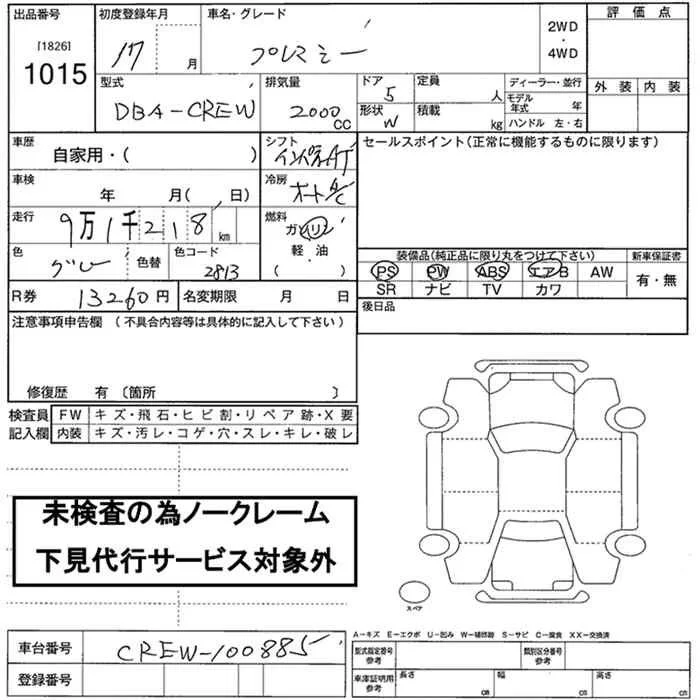 出品番号 初度登録年月 車名・グレード 評価点
[1826]
1015
17 月 プレマシー 2WD
・
4WD
外装 内装
型式 排気量 ドア 定員 ディーラー・並行
DBA-CREW 2000 CC 5 人 モデル年式 年
形状 積載
W kg ハンドル 左・右
車歴 シフト セールスポイント(正常に機能するものに限ります)
自家用・( ) インパネAT
車検 冷房
年 月( , 日) オートA/C
走行 燃料
9万1千218 km ガソリン
軽・油
( )
色 色替 色コード
グレー 2813
装備品(純正品に限り丸をつけて下さい) 新車保証書
PS PW ABS エアB AW 有・無
SR ナビ TV カワ
R券 13260円 名変期限 月 日 後日品
注意事項申告欄 (不具合内容等は具体的に記入して下さい)
修復歴 有 〔箇所 〕
検査員 FW キズ・飛石・ヒビ割・リペア跡・X要
記入欄 内装 キズ・汚レ・コゲ・穴・スレ・キレ・破レ
未検査の為ノークレーム
下見代行サービス対象外
スペア
A-キズ E-エクボ U-凹み W-補修跡 S-サビ C-腐食 XX-交換済
車台番号 CREW-100885 型式指定番号 類別区分番号
参考 参考
登録番号 車庫証明用 長さ 幅 高さ
参考 cm cm cm